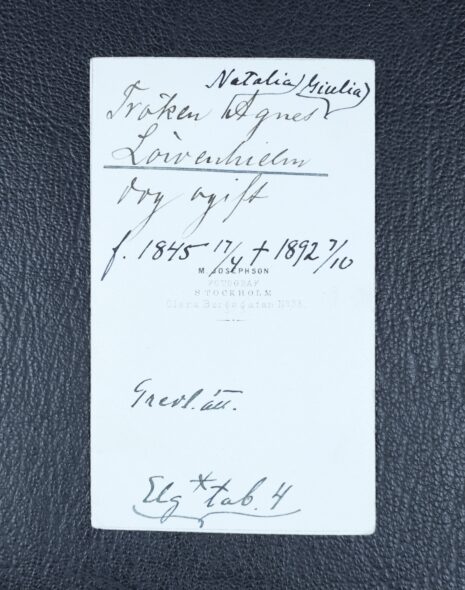 Natalia Giulia
Fröken Agnes
Löwenhielm
dog ogift
f. 1845 17/4 † 1892 7/10
M. JOSEPHSON
FOTOGRAF
STOCKHOLM
Clara Bergsgatan No
Grevl. ätt.
Elg* tab. 4